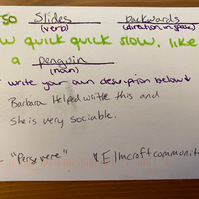 so Slides backwards
(verb) (direction in space)
ow quick quick slow. like
a penguin
(noun)
write your own description below↓
Barbara Helped write this and
She is very sociable.
- "Persevere" Elmcroft communit